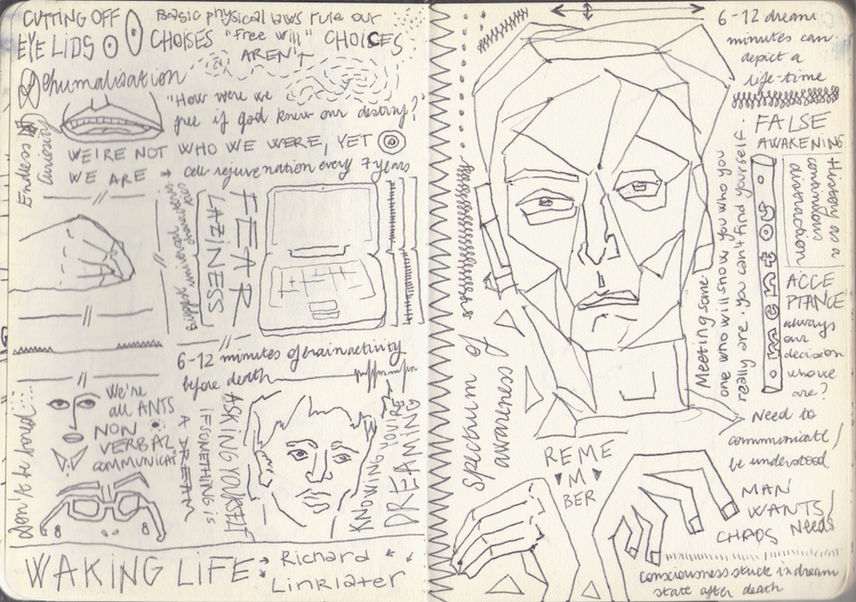 CUTTING OFF
EYE LIDS
Basic physical laws rule our
CHOISES "free will" CHOICES
AREN'T
Dehumalisation
"How were we
free if god knew our destiny?"
Endless
Curiosity
WE'RE NOT WHO WE WERE, YET
WE ARE → cell rejuvenation every 7 years
Biggest universal
characteristics
LAZINESS
FEAR
6-12 minutes of brain activity
before death
We're
all ANTS
NON
VERBAL
COMMUNICAT
Don't be bored
A DREAM
IF SOMETHING IS
ASKING YOURSELF
KNOWING YOU'RE
DREAMING
WAKING LIFE → Richard
Linklater
6-12 dream
minutes can
depict a
life-time
FALSE
AWAKENING
History as a
continuous
distraction
Meeting some-
one who will show you who you
really are. you can't find yourself.
moments
ACCE
PTANCE
always
our
decision
who we
are?
Spectrum of
awareness
REME
M
BER
Need to
communicate /
be understood
MAN
WANTS /
Needs
CHAOS
consciousness stuck in dream
state after death